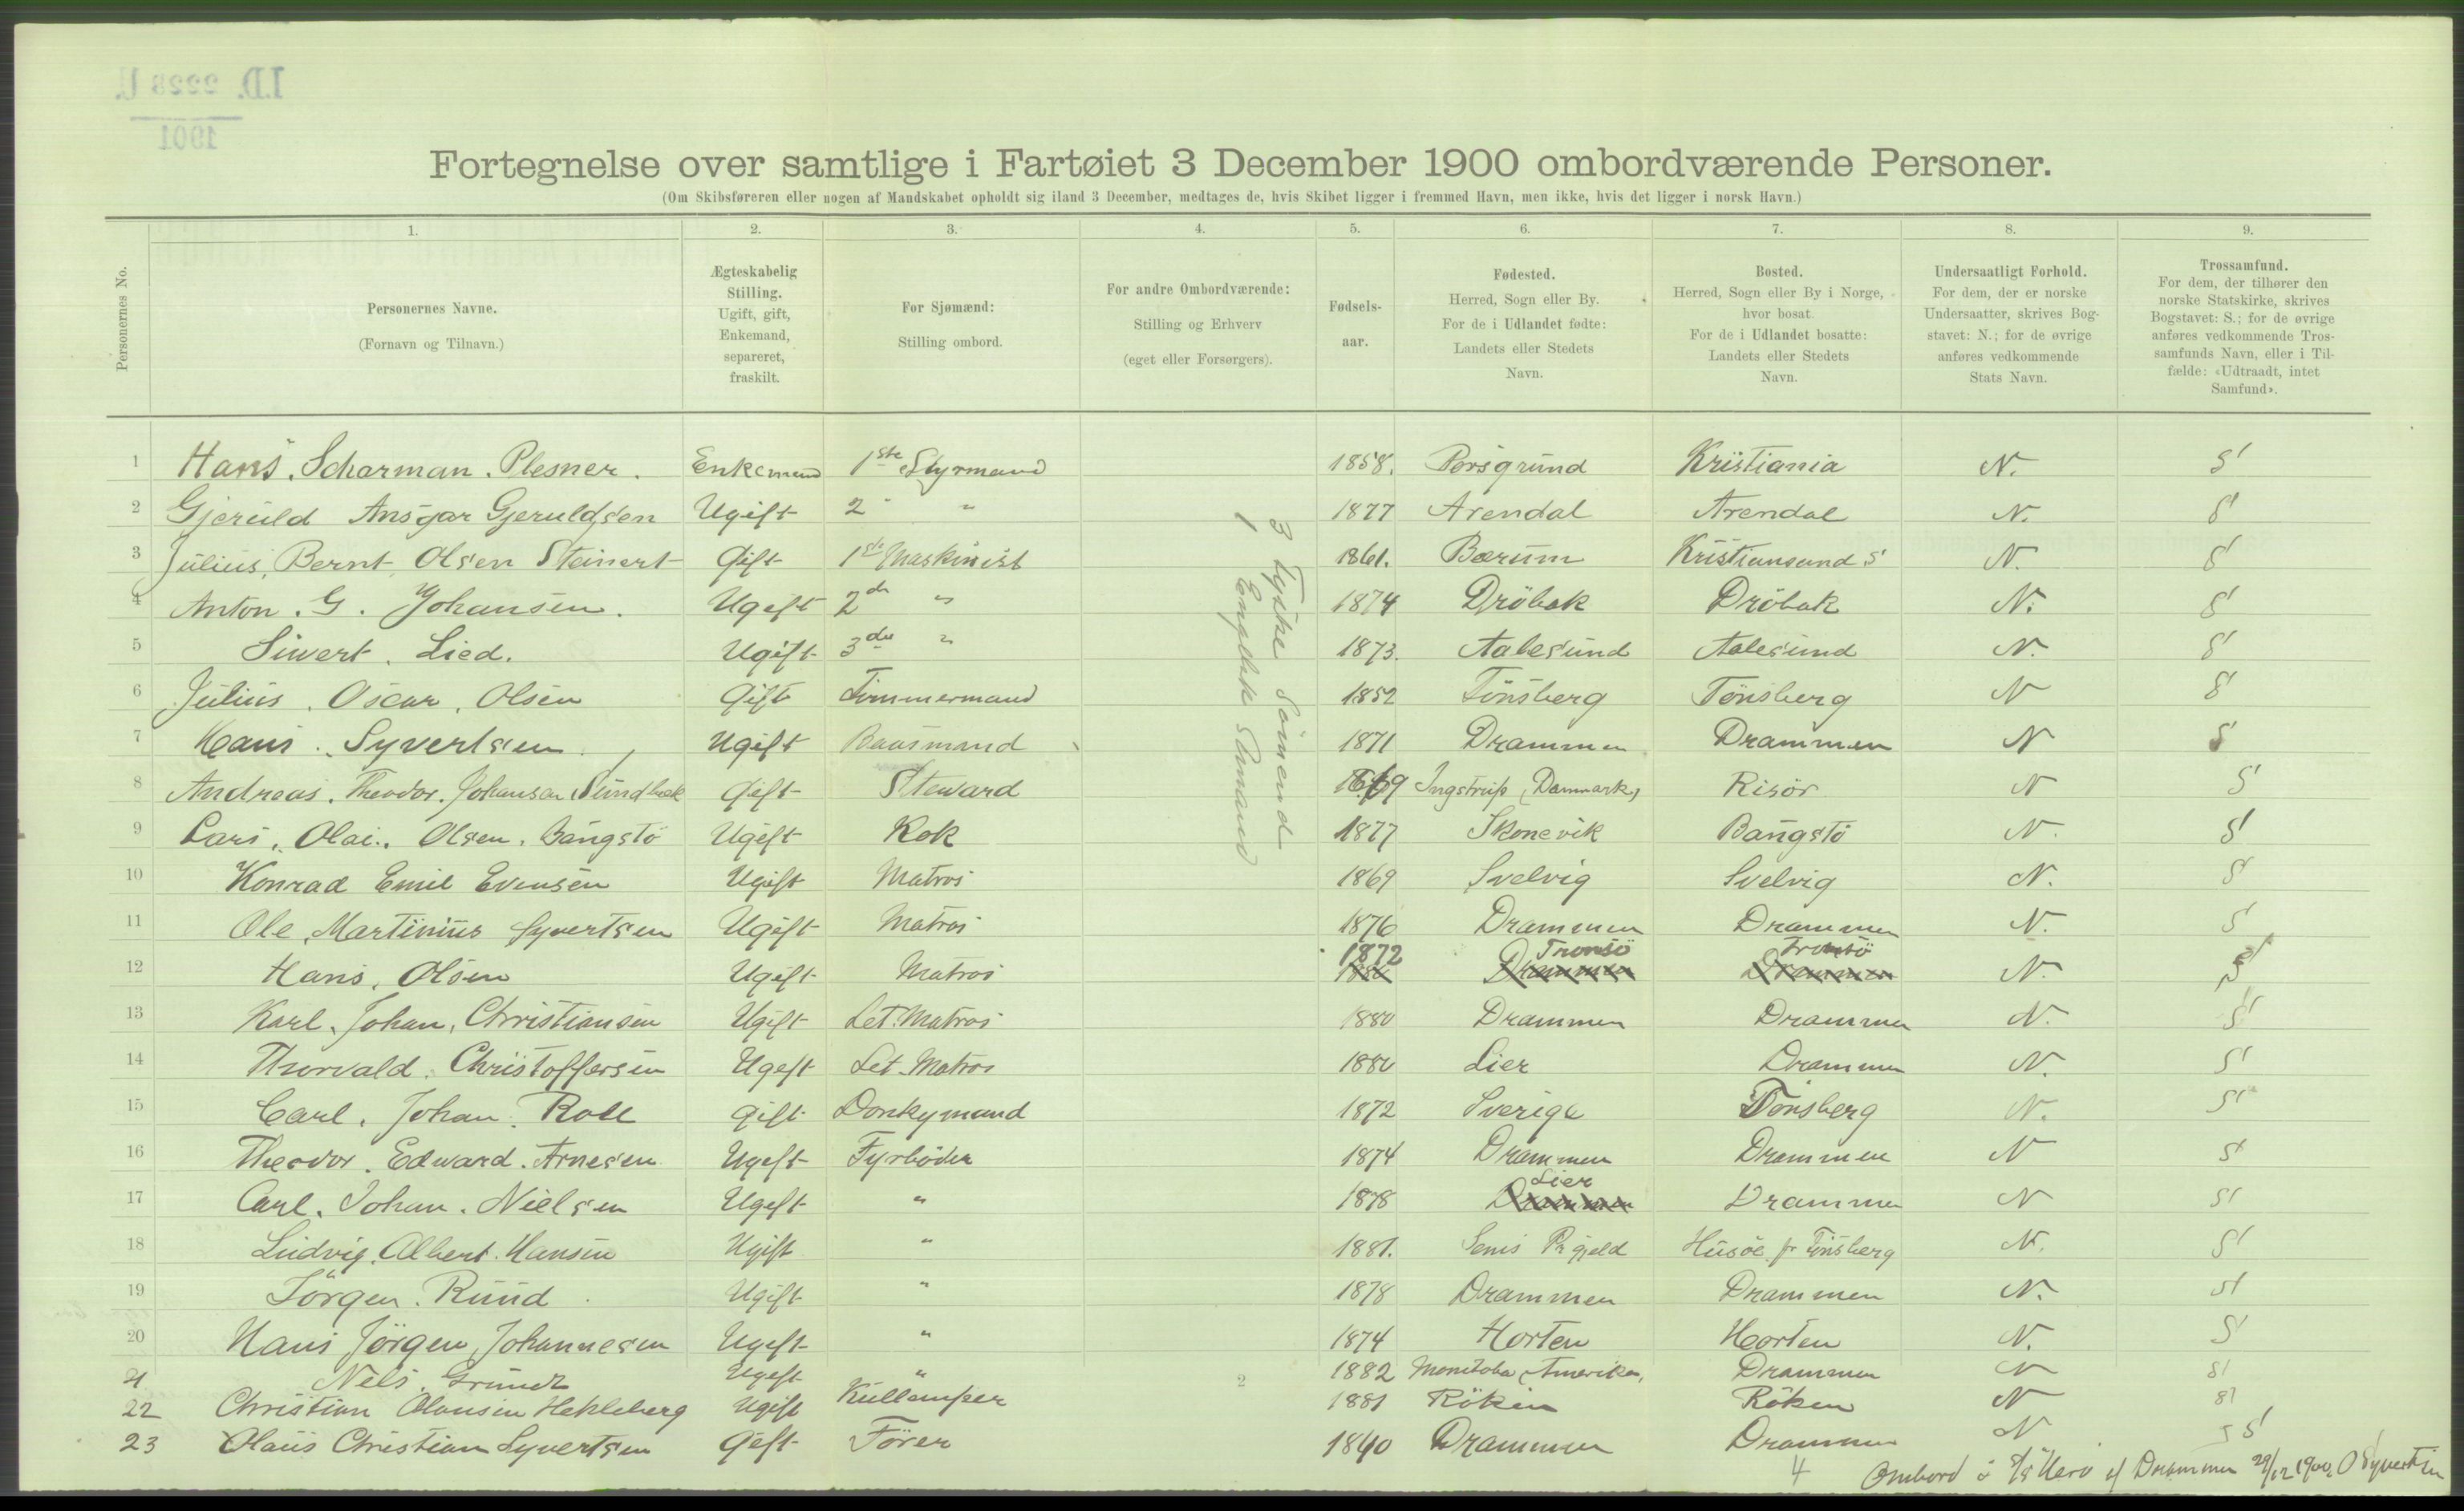 I.D. 2228 U.
1901
Fortegnelse over samtlige i Fartøiet 3 December 1900 ombordværende Personer.
(Om Skibsføreren eller nogen af Mandskabet opholdt sig iland 3 December, medtages de, hvis Skibet ligger i fremmed Havn, men ikke, hvis det ligger i norsk Havn.)
1. 2. 3. 4. 5. 6. 7. 8. 9.
Personernes No.
Personernes Navne.
(Fornavn og Tilnavn.)
Ægteskabelig
Stilling.
Ugift, gift,
Enkemand,
separeret,
fraskilt.
For Sjømænd:
Stilling ombord.
For andre Ombordværende:
Stilling og Erhverv
(eget eller Forsørgers).
Fødsels-
aar.
Fødested.
Herred, Sogn eller By.
For de i Udlandet fødte:
Landets eller Stedets
Navn.
Bosted.
Herred, Sogn eller By i Norge,
hvor bosat.
For de i Udlandet bosatte:
Landets eller Stedets
Navn.
Undersaatligt Forhold.
For dem, der er norske
Undersaatter, skrives Bog-
stavet: N.; for de øvrige
anføres vedkommende
Stats Navn.
Trossamfund.
For dem, der tilhører den
norske Statskirke, skrives
Bogstavet: S.; for de øvrige
anføres vedkommende Tros-
samfunds Navn, eller i Til-
fælde: «Udtraadt, intet
Samfund».
1 Hans. Scharman. Plesner. Enkemand 1ste Styrmand 1858. Porsgrund Kristiania N. S
2 Gjeruld Ansgar Gjeruldsen Ugift 2 " " 1877 Arendal Arendal N. S
3 Julius, Bernt Olsen Steinert Gift 1ste Maskinist 1861. Bærum Kristiansand S N. S
4 Anton. G. Johansen. Ugift 2de " 1874 Dröbak Dröbak N. S
5 Sivert. Lied. Ugift 3die " 1873. Aalesund Aalesund N. S
6 Julius. Oscar. Olsen Gift Timmermand 1852 Tönsberg Tönsberg N S
7 Hans. Syvertsen. Ugift Baasmand 1871 Drammen Drammen N S
8 Andreas. Theodor. Johansen Sundbæk Gift Steward 1869 Ingstrup (Danmark) Risör N S
9 Lars. Olai. Olsen. Bangstö Ugift Kok 1877 Skonevik Bangstö N. S
10 Konrad Emil Evensen Ugift Matros 1869 Svelvig Svelvig N. S
11 Ole. Martinius Syvertsen Ugift Matros 1876 Drammen Drammen N. S
1872 Tromsö Tromsö
12 Hans. Olsen Ugift Matros Drammen Drammen N. S
13 Karl. Johan. Christiansen Ugift Let. Matros 1880 Drammen Drammen N. S
14 Thorvald. Christoffersen Ugift Let. Matros 1880 Lier Drammen N. S
15 Carl. Johan. Roll gift Donkymand 1872 Sverige Tönsberg N. S
16 Theodor. Edward. Arnesen Ugift Fyrböder 1874 Drammen Drammen N S
Lier
17 Carl. Johan. Nielsen Ugift " 1878 Drammen Drammen N S
18 Ludvig. Albert. Hansen Ugift " 1881. Sems Prgjeld Husöe pr Tönsberg N. S
19 Jörgen. Rund. Ugift " 1878 Drammen Drammen N. S
20 Hans Jörgen Johannesen Ugift " 1874 Horten Horten N. S
21 Nels. Grundt Ugift " 1882 Manitoba (Amerika) Drammen N S
22 Christian Olausen Hekleberg Ugift Kullemper 1881 Röken Röken N S
23 Olaus Christian Syvertsen Gift Förer 1840 Drammen Drammen N S
3 Tyske Sömend
1 Engelsk Sömand
2
4
Ombord i S/S Hero af Drammen 29/12 1900. O Syvertsen